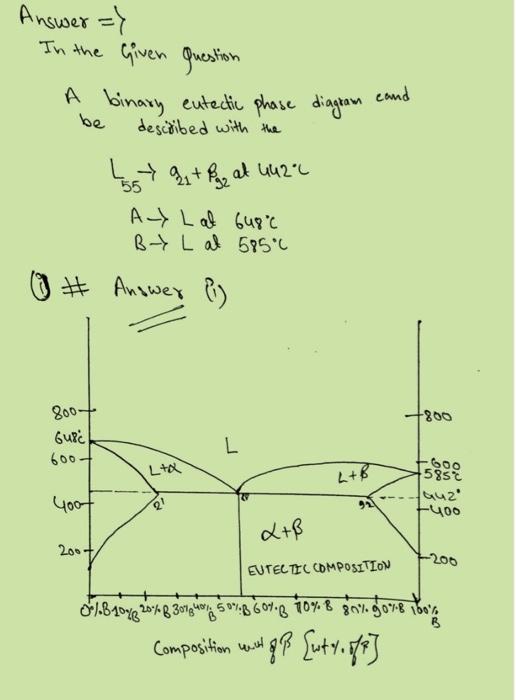 Answer =>
In the Given Question
A binary eutectic phase diagram cand
be described with the
L55 → α21 + β92 at 442°C
A → L at 648°C
B → L at 585°C
(i) # Answer (i)
800
648°C
600
400
200
L
L+α
L+β
21
92
α+β
EUTECTIC COMPOSITION
800
600
585°C
442°
400
200
0%B 10%B 20%B 30%B 40%B 50%B 60%B 70%B 80% 90%B 100%B
Composition of B [wt%